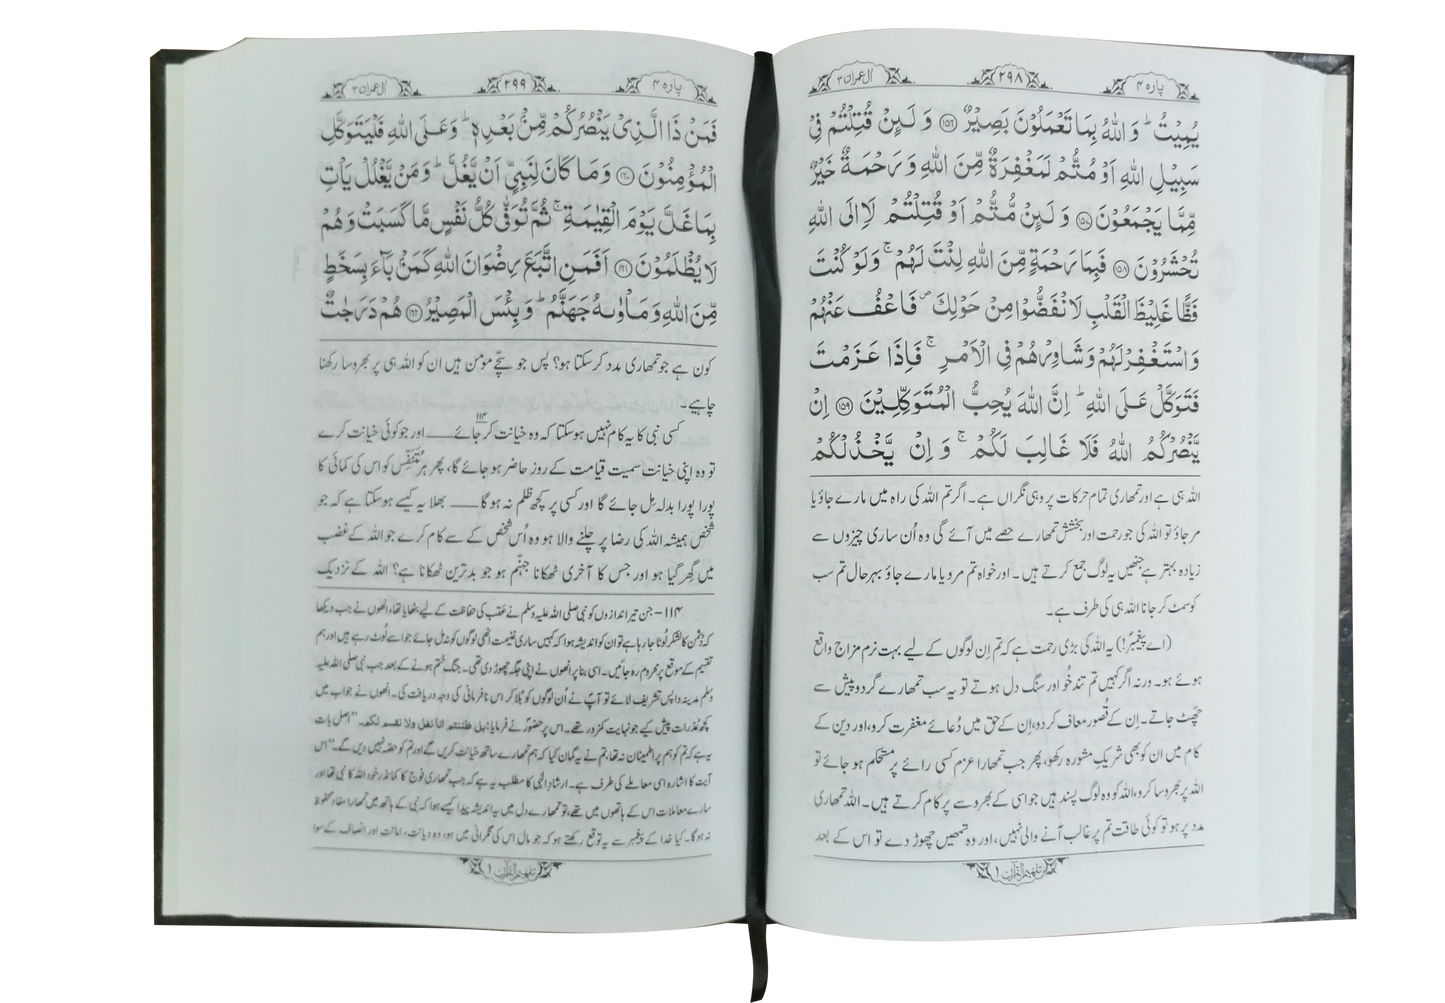 پارہ ۴
۲۹۸
اٰل عمرٰن ۳
يُمِيْتُ ؕ وَ اللّٰهُ بِمَا تَعْمَلُوْنَ بَصِيْرٌ ﴿۱۵۶﴾ وَ لَىِٕنْ قُتِلْتُمْ فِيْ
سَبِيْلِ اللّٰهِ اَوْ مُتُّمْ لَمَغْفِرَةٌ مِّنَ اللّٰهِ وَ رَحْمَةٌ خَيْرٌ
مِّمَّا يَجْمَعُوْنَ ﴿۱۵۷﴾ وَ لَىِٕنْ مُّتُّمْ اَوْ قُتِلْتُمْ لَاۡ اِلَى اللّٰهِ
تُحْشَرُوْنَ ﴿۱۵۸﴾ فَبِمَا رَحْمَةٍ مِّنَ اللّٰهِ لِنْتَ لَهُمْ ۚ وَ لَوْ كُنْتَ
فَظًّا غَلِيْظَ الْقَلْبِ لَانْفَضُّوْا مِنْ حَوْلِكَ ۪ فَاعْفُ عَنْهُمْ
وَ اسْتَغْفِرْ لَهُمْ وَ شَاوِرْهُمْ فِي الْاَمْرِ ۚ فَاِذَا عَزَمْتَ
فَتَوَكَّلْ عَلَى اللّٰهِ ؕ اِنَّ اللّٰهَ يُحِبُّ الْمُتَوَكِّلِيْنَ ﴿۱۵۹﴾ اِنْ
يَّنْصُرْكُمُ اللّٰهُ فَلَا غَالِبَ لَكُمْ ۚ وَ اِنْ يَّخْذُلْكُمْ
اللہ ہی ہے اور تمھاری تمام حرکات پر وہی نگراں ہے۔ اگر تم اللہ کی راہ میں مارے جاؤ یا
مر جاؤ تو اللہ کی جو رحمت اور بخشش تمھارے حصے میں آئے گی وہ اُن ساری چیزوں سے
زیادہ بہتر ہے جنھیں یہ لوگ جمع کرتے ہیں۔ اور خواہ تم مرو یا مارے جاؤ بہرحال تم سب
کو سمٹ کر جانا اللہ ہی کی طرف ہے۔
(اے پیغمبرؐ!) یہ اللہ کی بڑی رحمت ہے کہ تم اِن لوگوں کے لیے بہت نرم مزاج واقع
ہوئے ہو۔ ورنہ اگر کہیں تم تند خُو اور سنگ دل ہوتے تو یہ سب تمھارے گرد و پیش سے
چَھٹ جاتے۔ اِن کے قصور معاف کر دو، اِن کے حق میں دُعائے مغفرت کرو، اور دین کے
کام میں ان کو بھی شریکِ مشورہ رکھو، پھر جب تمھارا عزم کسی رائے پر مستحکم ہو جائے تو
اللہ پر بھروسا کرو، اللہ کو وہ لوگ پسند ہیں جو اسی کے بھروسے پر کام کرتے ہیں۔ اللہ تمھاری
مدد پر ہو تو کوئی طاقت تم پر غالب آنے والی نہیں، اور وہ تمھیں چھوڑ دے تو اس کے بعد
تفہیم القرآن ۱
پارہ ۴
۲۹۹
اٰل عمرٰن ۳
فَمَنْ ذَا الَّذِيْ يَنْصُرُكُمْ مِّنْۢ بَعْدِهٖ ؕ وَ عَلَى اللّٰهِ فَلْيَتَوَكَّلِ
الْمُؤْمِنُوْنَ ﴿۱۶۰﴾ وَ مَا كَانَ لِنَبِيٍّ اَنْ يَّغُلَّ ؕ وَ مَنْ يَّغْلُلْ يَاْتِ
بِمَا غَلَّ يَوْمَ الْقِيٰمَةِ ۚ ثُمَّ تُوَفّٰى كُلُّ نَفْسٍ مَّا كَسَبَتْ وَ هُمْ
لَا يُظْلَمُوْنَ ﴿۱۶۱﴾ اَفَمَنِ اتَّبَعَ رِضْوَانَ اللّٰهِ كَمَنْۢ بَآءَ بِسَخَطٍ
مِّنَ اللّٰهِ وَ مَاْوٰىهُ جَهَنَّمُ ؕ وَ بِئْسَ الْمَصِيْرُ ﴿۱۶۲﴾ هُمْ دَرَجٰتٌ
کون ہے جو تمھاری مدد کر سکتا ہو؟ پس جو سچّے مومن ہیں ان کو اللہ ہی پر بھروسا رکھنا
چاہیے۔
کسی نبی کا یہ کام نہیں ہو سکتا کہ وہ خیانت کر جائے ۱۱۴ ـــــ اور جو کوئی خیانت کرے
تو وہ اپنی خیانت سمیت قیامت کے روز حاضر ہو جائے گا، پھر ہر مُتَنَفِّس کو اس کی کمائی کا
پورا پورا بدلہ مِل جائے گا اور کسی پر کچھ ظلم نہ ہو گا ـــــ بھلا یہ کیسے ہو سکتا ہے کہ جو
شخص ہمیشہ اللہ کی رضا پر چلنے والا ہو وہ اُس شخص کے سے کام کرے جو اللہ کے غضب
میں گِھر گیا ہو اور جس کا آخری ٹھکانا جہنّم ہو جو بدترین ٹھکانا ہے؟ اللہ کے نزدیک
۱۱۴- جن تیر اندازوں کو نبی صلی اللہ علیہ وسلم نے عقب کی حفاظت کے لیے بٹھایا تھا، انھوں نے جب دیکھا
کہ دُشمن کا لشکر لُوٹا جا رہا ہے تو ان کو اندیشہ ہوا کہ کہیں ساری غنیمت انھی لوگوں کو نہ مل جائے جو اسے لُوٹ رہے ہیں اور ہم
تقسیم کے موقع پر محروم رہ جائیں۔ اسی بنا پر انھوں نے اپنی جگہ چھوڑ دی تھی۔ جنگ ختم ہونے کے بعد جب نبی صلی اللہ علیہ
وسلم مدینہ واپس تشریف لائے تو آپؐ نے اُن لوگوں کو بُلا کر اس نافرمانی کی وجہ دریافت کی۔ انھوں نے جواب میں
کچھ عُذرات پیش کیے جو نہایت کمزور تھے۔ اس پر حضورؐ نے فرمایا: بل ظننتم انا نغل ولا نقسم لکم۔ ”اصل بات
یہ ہے کہ تم کو ہم پر اطمینان نہ تھا، تم نے یہ گمان کیا کہ ہم تمھارے ساتھ خیانت کریں گے اور تم کو حصّہ نہیں دیں گے۔“ اس
آیت کا اشارہ اسی معاملے کی طرف ہے۔ ارشادِ الٰہی کا مطلب یہ ہے کہ جب تمھاری فوج کا کمانڈر خود اللہ کا نبی تھا اور
سارے معاملات اس کے ہاتھ میں تھے، تو تمھارے دل میں یہ اندیشہ پیدا کیسے ہوا کہ نبی کے ہاتھ میں تمھارا مفاد محفوظ
نہ ہو گا۔ کیا خدا کے پیغمبر سے یہ توقع رکھتے ہو کہ جو مال اس کی نگرانی میں ہو، وہ دیانت، امانت اور انصاف کے سوا
تفہیم القرآن ۱